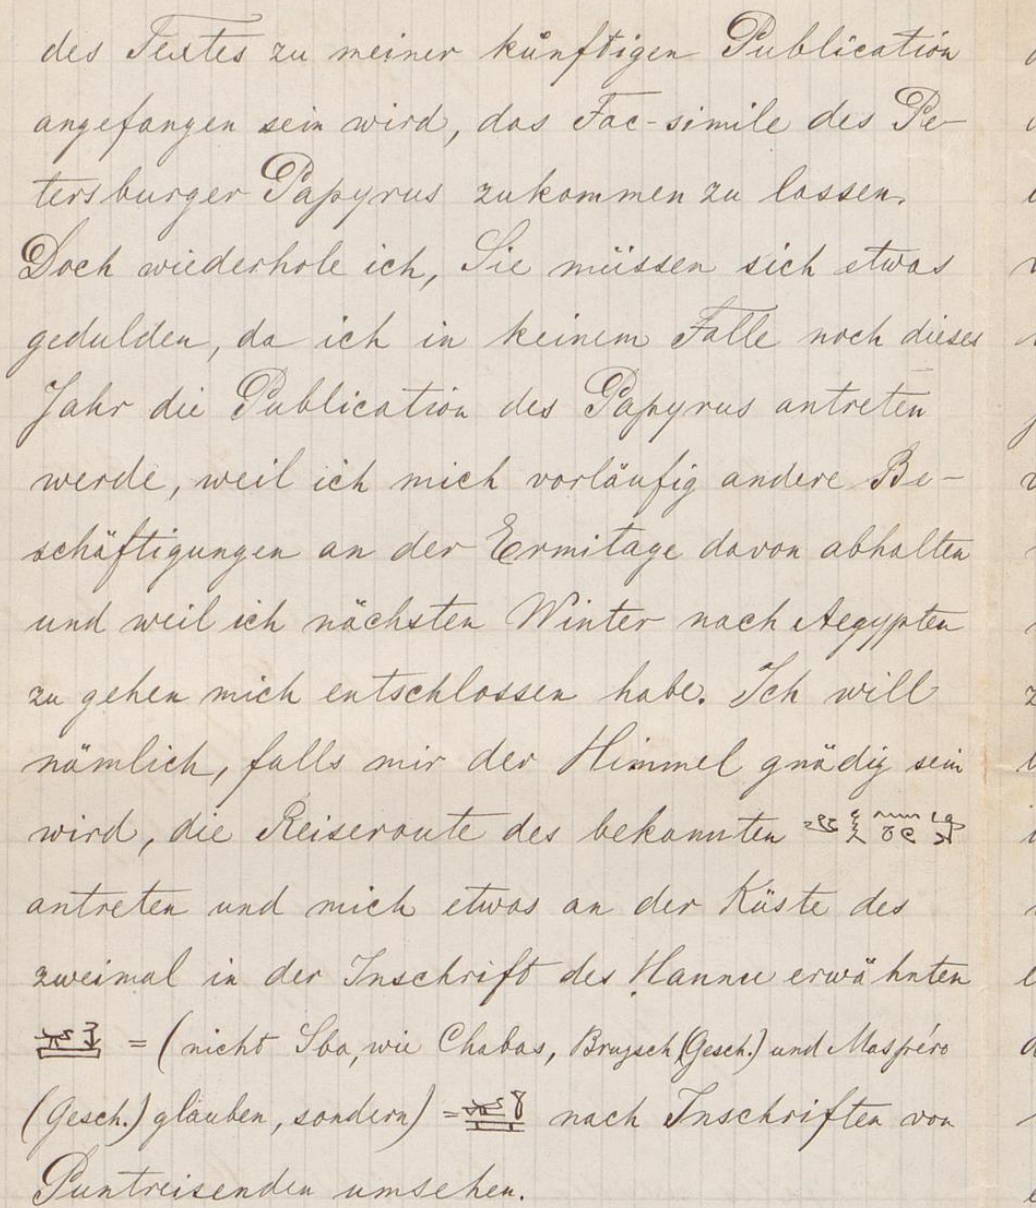 des Textes zu meiner künftigen Publication
angefangen sein wird, das Fac-simile des Pe-
tersburger Papyrus zukommen zu lassen.
Doch wiederhole ich, Sie müssen sich etwas
gedulden, da ich in keinem Falle noch dieses
Jahr die Publication des Papyrus antreten
werde, weil ich mich vorläufig andere Be-
schäftigungen an der Ermitage davon abhalten
und weil ich nächsten Winter nach Aegypten
zu gehen mich entschlossen habe. Ich will
nämlich, falls mir der Himmel gnädig sein
wird, die Reiseroute des bekannten
antreten und mich etwas an der Küste des
zweimal in der Inschrift des Hannu erwähnten
= (nicht Sba, wie Chabas, Brugsch (Gesch.) und Maspéro
(Gesch.) glauben, sondern) = nach Inschriften von
Puntreisenden umsehen.